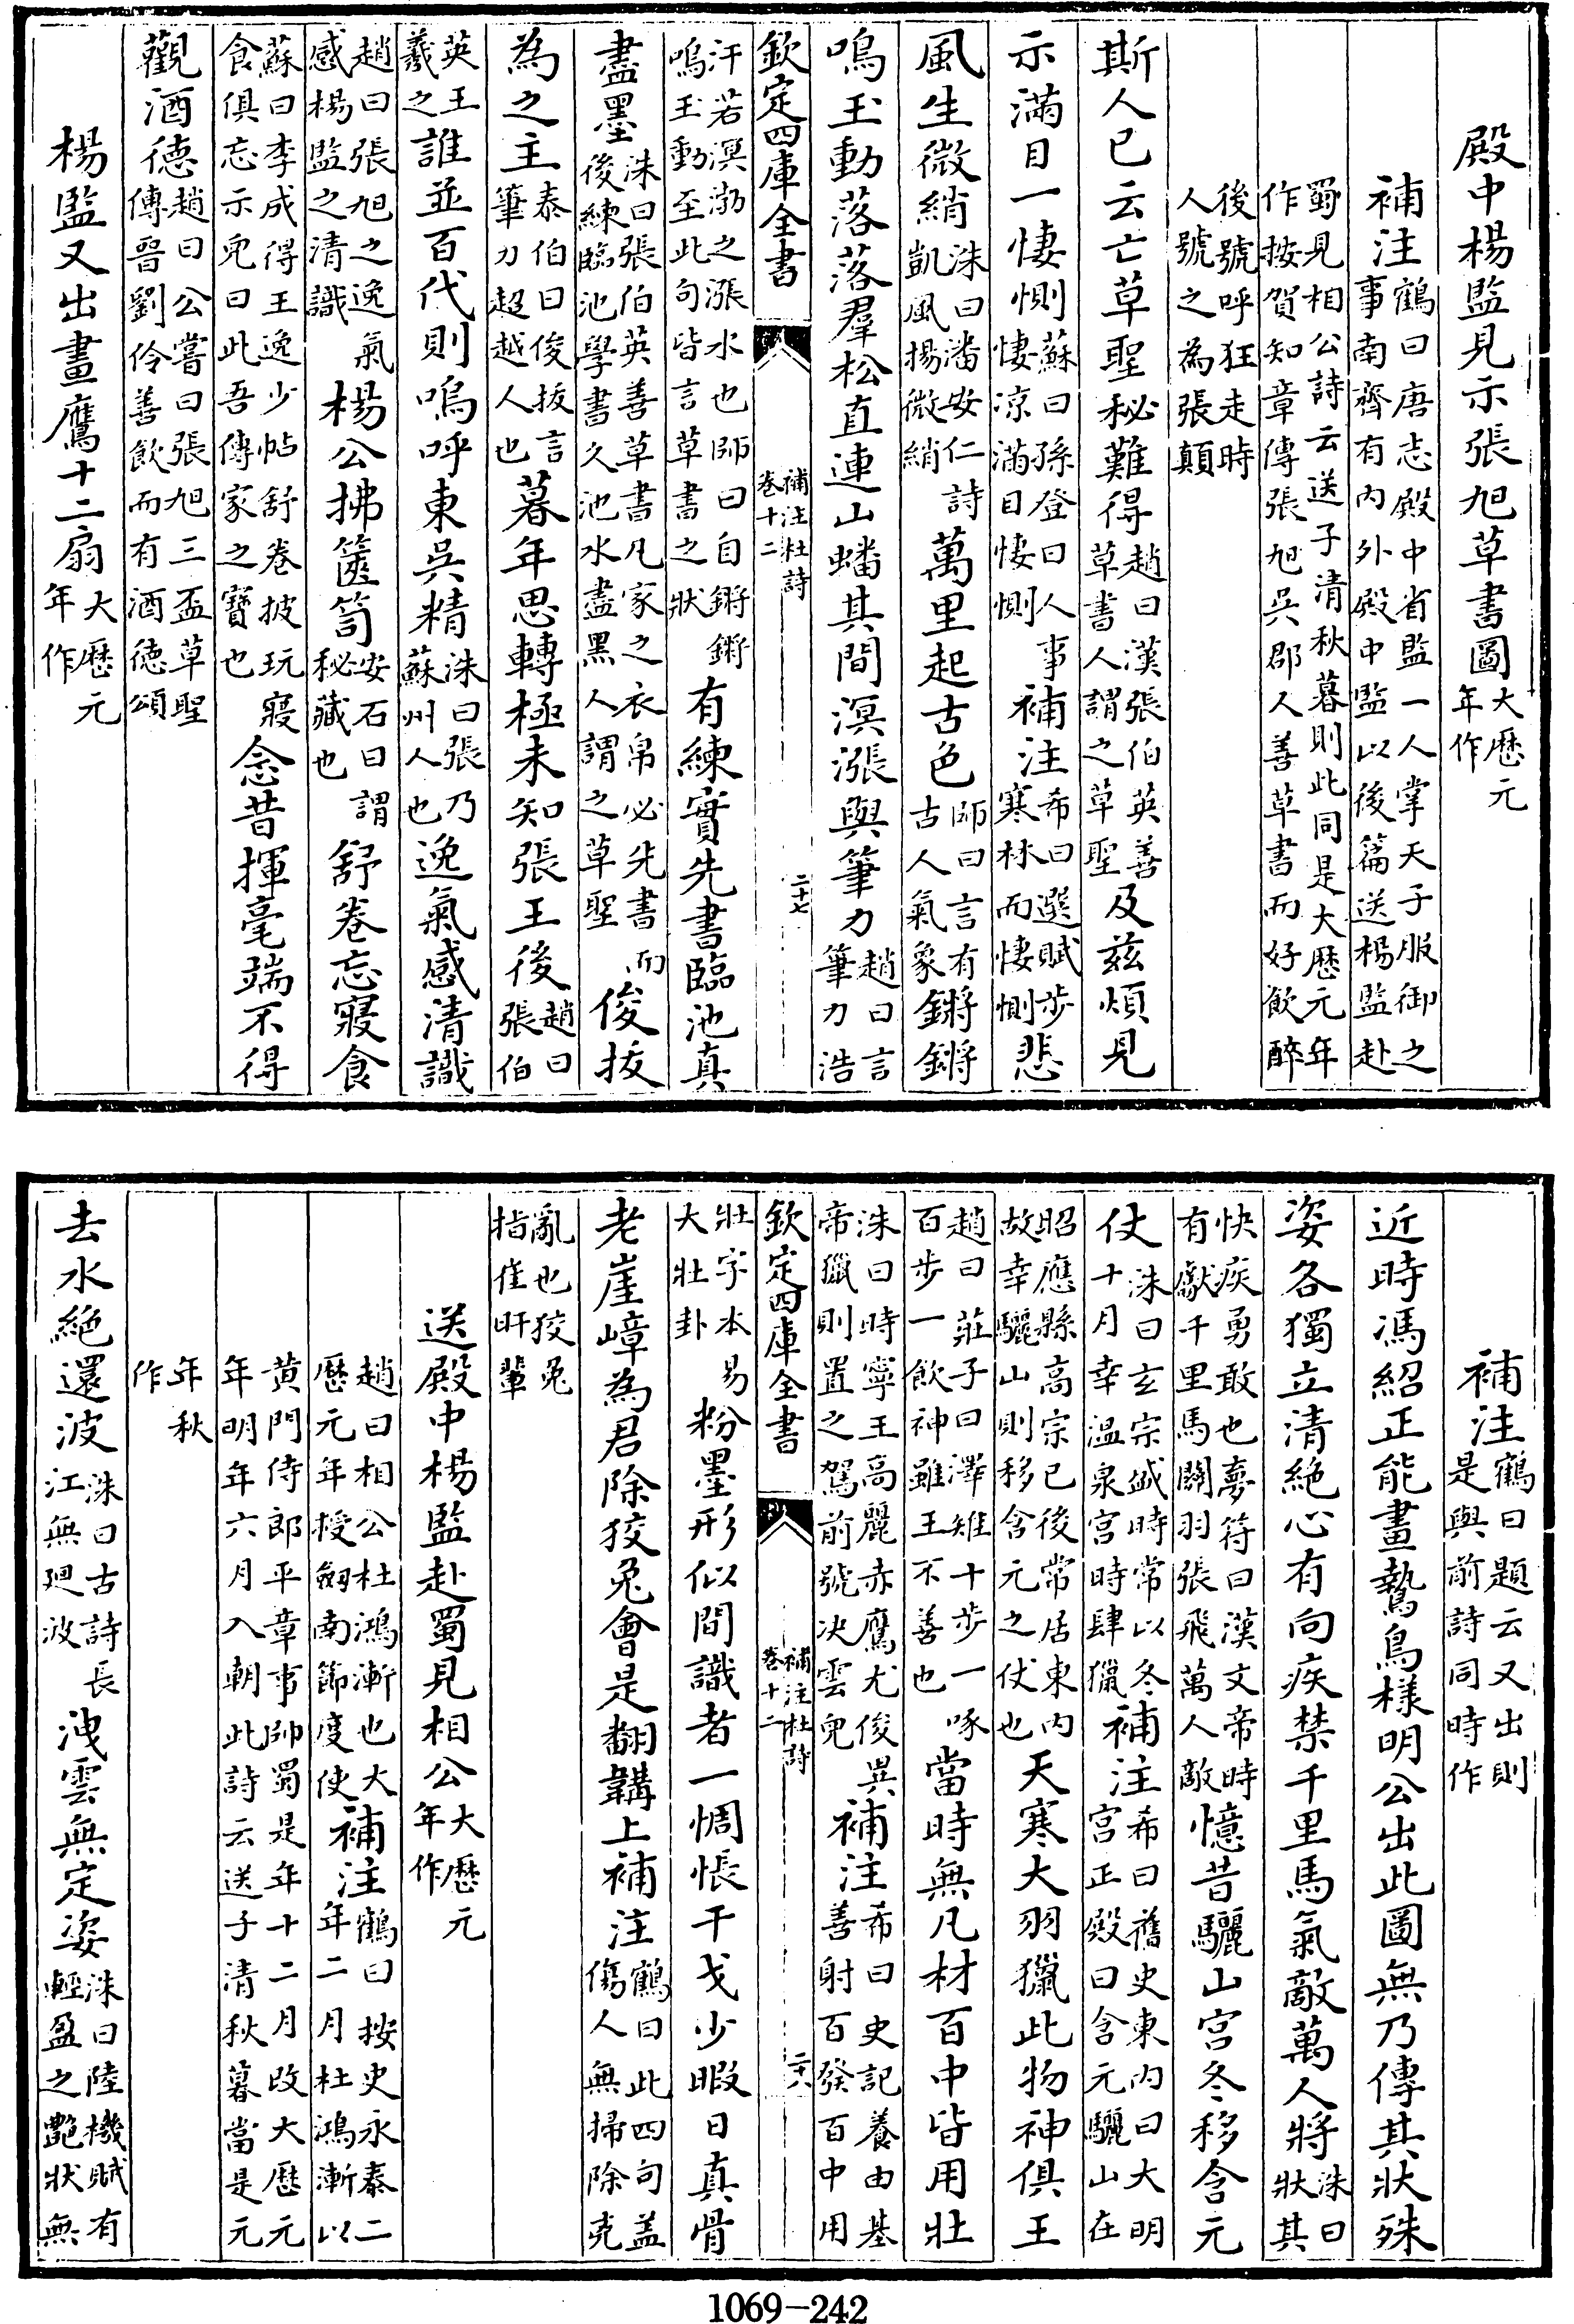 殿中楊監見示張旭草書圖大歷元年作
補注鶴曰唐志殿中省監一人掌天子服御之事南齊有内外殿中監以後篇送楊監赴
蜀見相公詩云送子清秋暮則此同是大歷元年作按賀知章傳張旭吳郡人善草書而好飲醉
後號呼狂走時人號之為張顛
斯人已云亡草聖秘難得趙曰漢張伯英善草書人謂之草聖及兹煩見
示滿目一悽惻蘇曰孫登曰人事悽凉滿目悽惻補注希曰選賦步寒林而悽惻悲
風生微綃洙曰潘安仁詩凱風揚微綃萬里起古色師曰言有古人氣象鏘鏘
鳴玉動落落羣松直連山蟠其間溟漲與筆力趙曰言筆力浩
欽定四庫全書 補注杜詩卷十二 二十七
汗若溟渤之漲水也師曰自鏘鏘鳴玉動至此句皆言草書之狀有練實先書臨池真
盡墨洙曰張伯英善草書凡家之衣帛必先書而後練臨池學書久池水盡黑人謂之草聖俊拔
為之主泰伯曰俊拔言筆力超越人也暮年思轉極未知張王後趙曰張伯
英王羲之誰並百代則嗚呼東吳精洙曰張乃蘇州人也逸氣感清識
趙曰張旭之逸氣感楊監之清識楊公拂篋笥安石曰謂秘藏也舒卷忘寢食
蘇曰李成得王逸少帖舒卷披玩寢食俱忘示兒曰此吾傳家之寶也念昔揮毫端不得
觀酒德趙曰公嘗曰張旭三盃草聖傳晉劉伶善飲而有酒德頌
楊監又出畫鷹十二扇大歷元年作
補注鶴曰題云又出則是與前詩同時作
近時馮紹正能畫鷙鳥様明公出此圖無乃傳其狀殊
姿各獨立清絶心有向疾禁千里馬氣敵萬人將洙曰狀其
快疾勇敢也夢符曰漢文帝時有獻千里馬關羽張飛萬人敵憶昔驪山宫冬移含元
仗洙曰玄宗盛時常以冬十月幸温泉宫時肆獵補注希曰舊史東内曰大明宫正殿曰含元驪山在
昭應縣高宗已後常居東内故幸驪山則移含元之仗也天寒大羽獵此物神俱王
趙曰莊子曰澤雉十步一啄百步一飲神雖王不善也當時無凡材百中皆用壯
洙曰時寧王高麗赤鷹尤俊異帝獵則置之駕前號决雲兒補注希曰史記養由基善射百發百中用
欽定四庫全書 補注杜詩卷十二 二十八
壯字本易大壯卦粉墨形似間識者一惆悵干戈少暇日真骨
老崖嶂為君除狡兔會是翻韝上補注鶴曰此四句盖傷人無掃除兇
亂也狡兔指崔旰輩
送殿中楊監赴蜀見相公大歷元年作
趙曰相公杜鴻漸也大歷元年授劒南節度使補注鶴曰按史永泰二年二月杜鴻漸以
黄門侍郎平章事帥蜀是年十二月改大歷元年明年六月入朝此詩云送子清秋暮當是元
年秋作
去水絶還波洙曰古詩長江無廻波洩雲無定姿洙曰陸機賦有輕盈之艷狀無
1069-242